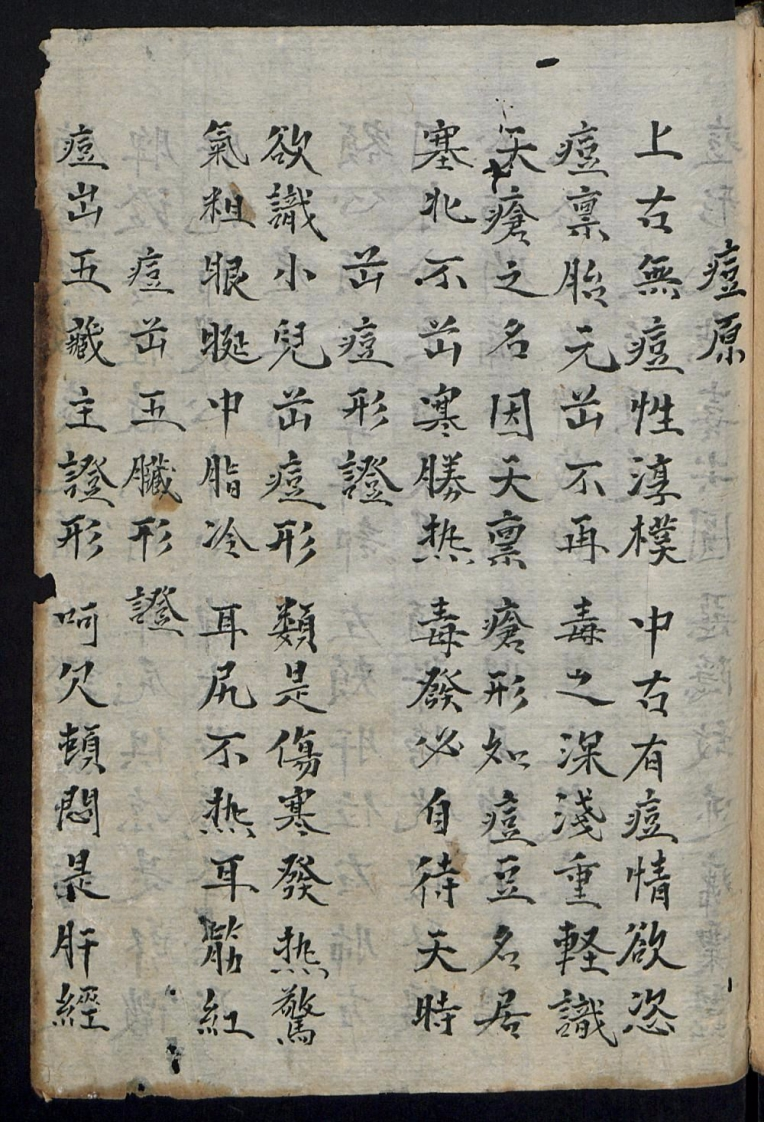 痘原
上古無痘性淳樸 中古有痘情欲恣
痘禀胎元出不再 毒之深淺重軽識
天瘡之名因天禀 瘡形如痘豆名居
塞北不出寒勝热 毒發必自待天時
出痘形證
欲識小兒出痘形 類是傷寒發热驚
氣粗眼眤中脂冷 耳尻不热耳筋紅
痘出五臟形證
痘出五藏主證形 呵欠頓悶是肝經